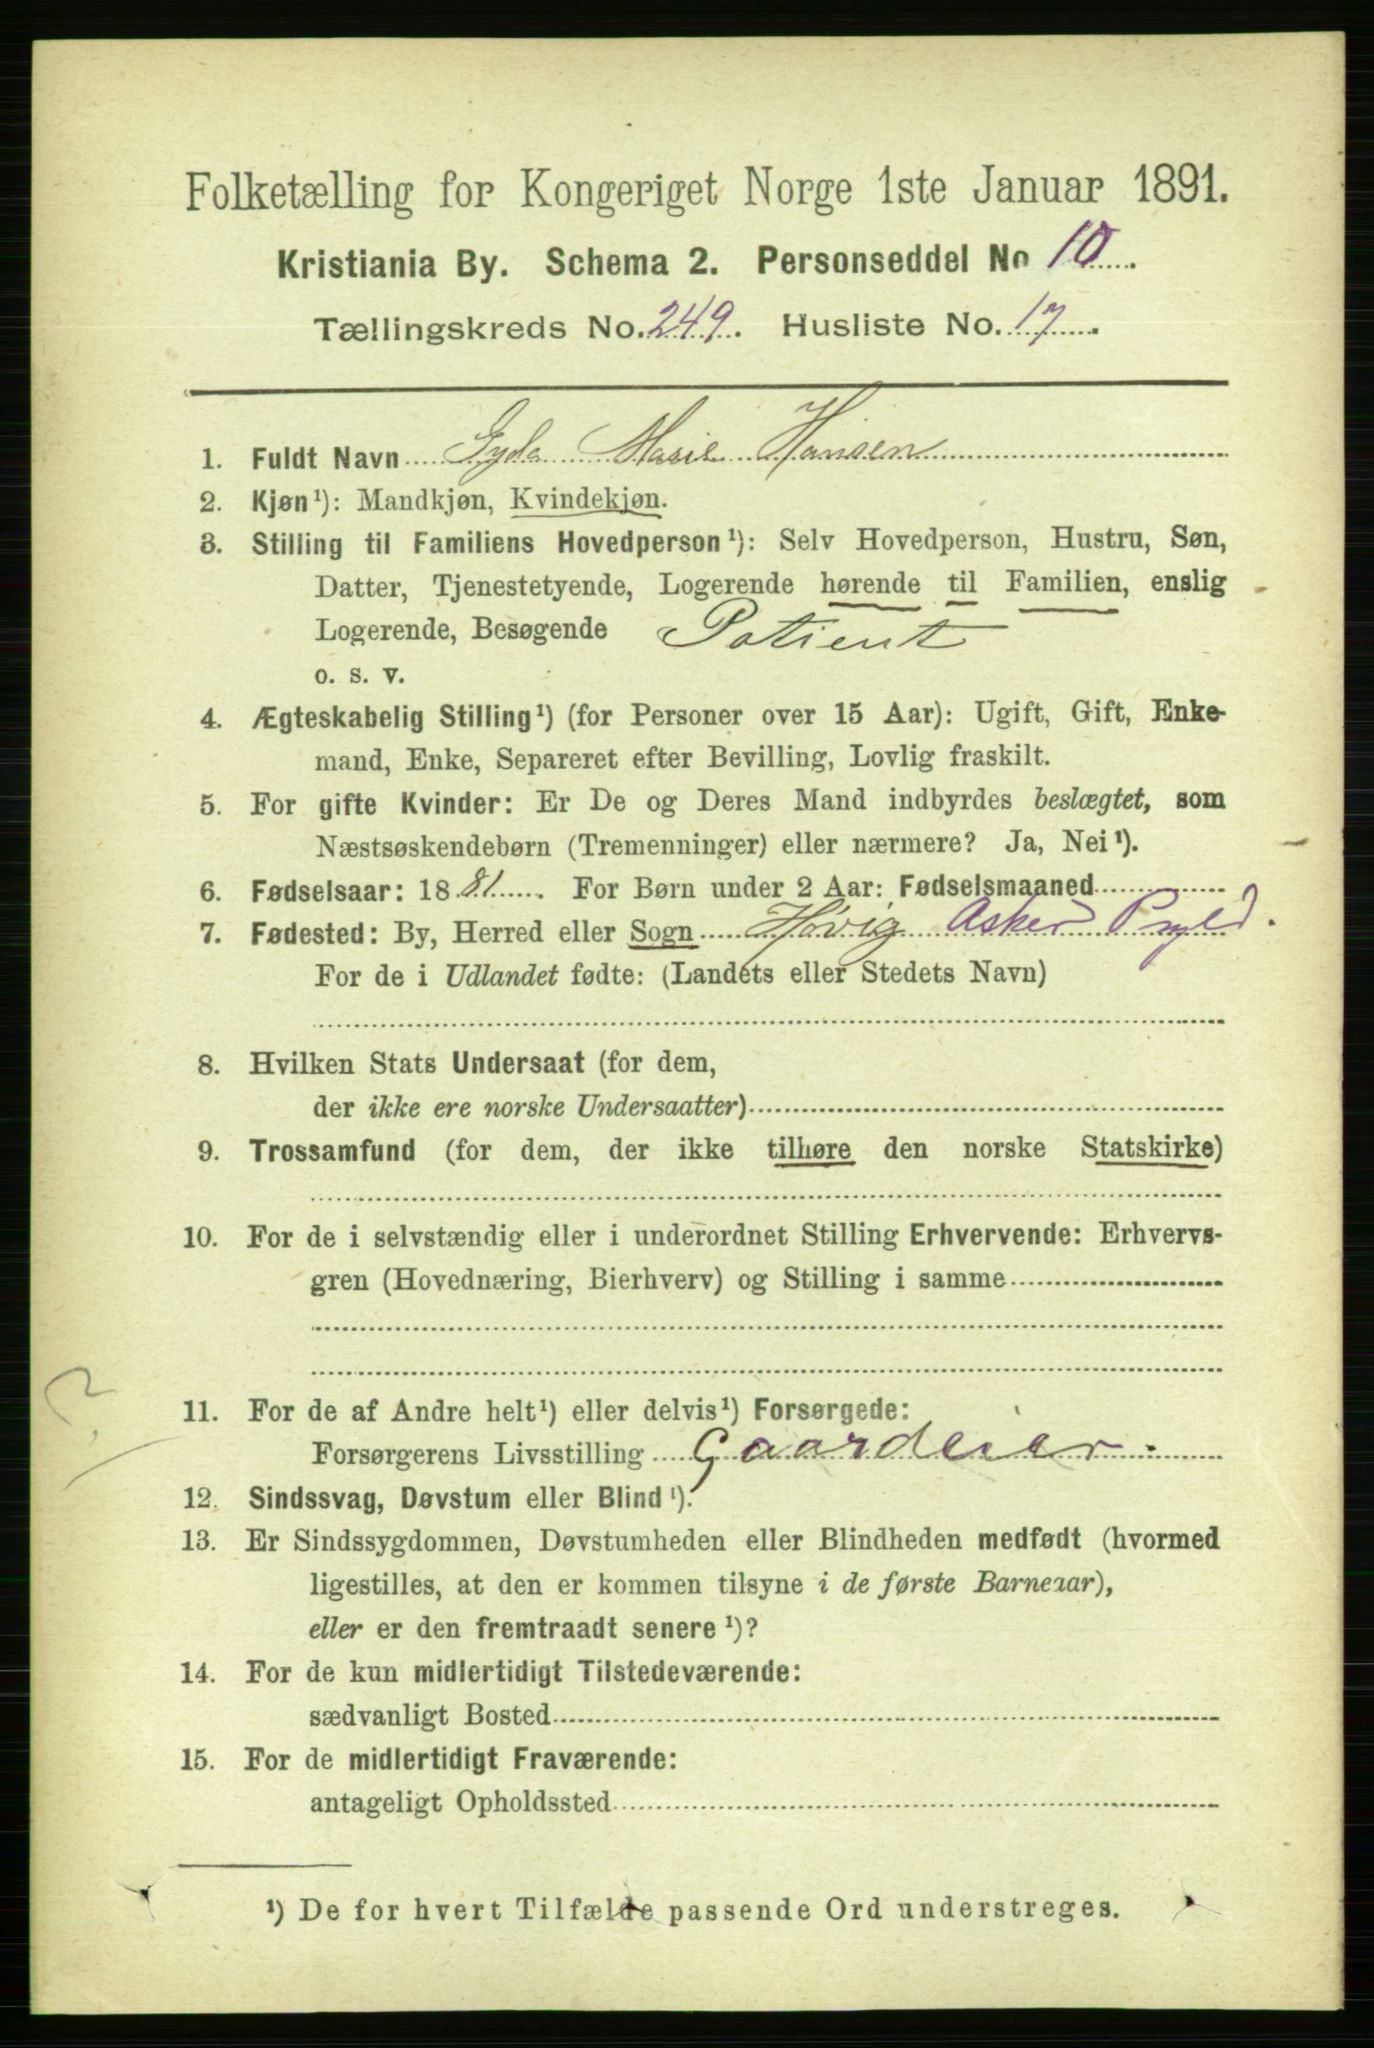 Folketælling for Kongeriget Norge 1ste Januar 1891.
Kristiania By. Schema 2. Personseddel No 10
Tællingskreds No. 249. Husliste No. 17.
1. Fuldt Navn Gyda Marie Hansen
2. Kjøn¹): Mandkjøn, Kvindekjøn.
3. Stilling til Familiens Hovedperson¹): Selv Hovedperson, Hustru, Søn,
Datter, Tjenestetyende, Logerende hørende til Familien, enslig
Logerende, Besøgende Patient
o. s. v.
4. Ægteskabelig Stilling¹) (for Personer over 15 Aar): Ugift, Gift, Enke-
mand, Enke, Separeret efter Bevilling, Lovlig fraskilt.
5. For gifte Kvinder: Er De og Deres Mand indbyrdes beslægtet, som
Næstsøskendebørn (Tremenninger) eller nærmere? Ja, Nei¹).
6. Fødselsaar: 1881. For Børn under 2 Aar: Fødselsmaaned
7. Fødested: By, Herred eller Sogn Høvig Asker Prgld.
For de i Udlandet fødte: (Landets eller Stedets Navn)
8. Hvilken Stats Undersaat (for dem,
der ikke ere norske Undersaatter)
9. Trossamfund (for dem, der ikke tilhøre den norske Statskirke)
10. For de i selvstændig eller i underordnet Stilling Erhvervende: Erhvervs-
gren (Hovednæring, Bierhverv) og Stilling i samme
11. For de af Andre helt¹) eller delvis¹) Forsørgede:
Forsørgerens Livsstilling Gaardeier.
12. Sindssvag, Døvstum eller Blind¹).
13. Er Sindssygdommen, Døvstumheden eller Blindheden medfødt (hvormed
ligestilles, at den er kommen tilsyne i de første Barneaar),
eller er den fremtraadt senere¹)?
14. For de kun midlertidigt Tilstedeværende:
sædvanligt Bosted
15. For de midlertidigt Fraværende:
antageligt Opholdssted
¹) De for hvert Tilfælde passende Ord understreges.